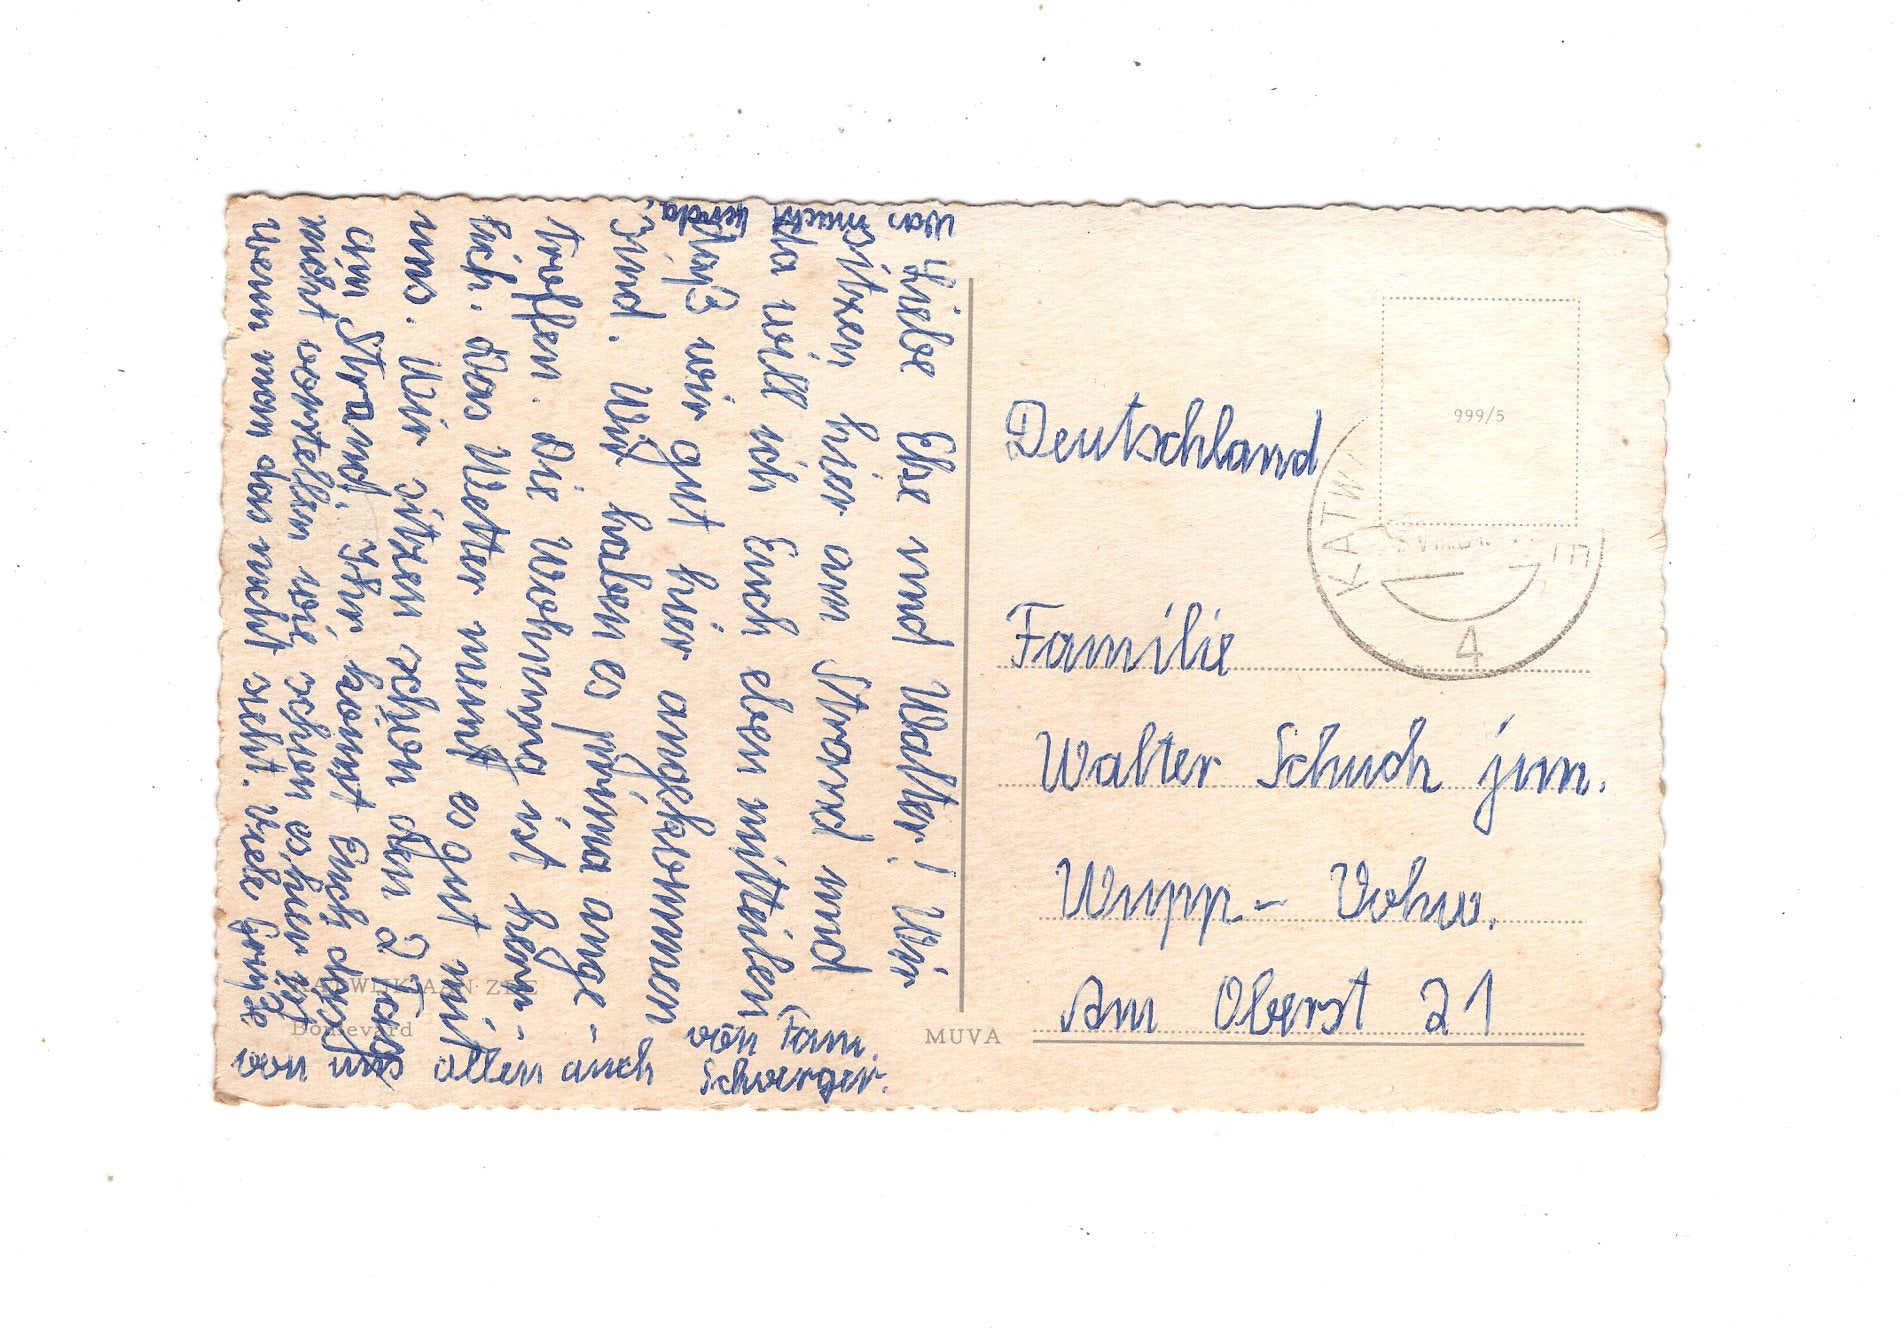 Liebe Else und Walter! Wir
sitzen hier am Strand und
da will ich Euch eben mitteilen
daß wir gut hier angekommen
sind. Wir haben es prima ange-
troffen. Die Wohnung ist herr-
lich. Das Wetter meint es gut mit
uns. Wir sitzen schon den 2 Tag
am Strand. Ihr könnt Euch das
nicht vorstellen wie schön es hier ist
wenn man das nicht sieht. Viele Grüße
von uns allen auch
von Fam.
Schwerger.
Was macht Gerda?
KATWIJK AAN ZEE
Boulevard
MUVA
999/5
KATW
4
Deutschland
Familie
Walter Schuch jun.
Wupp.- Vohw.
Am Oberst 21